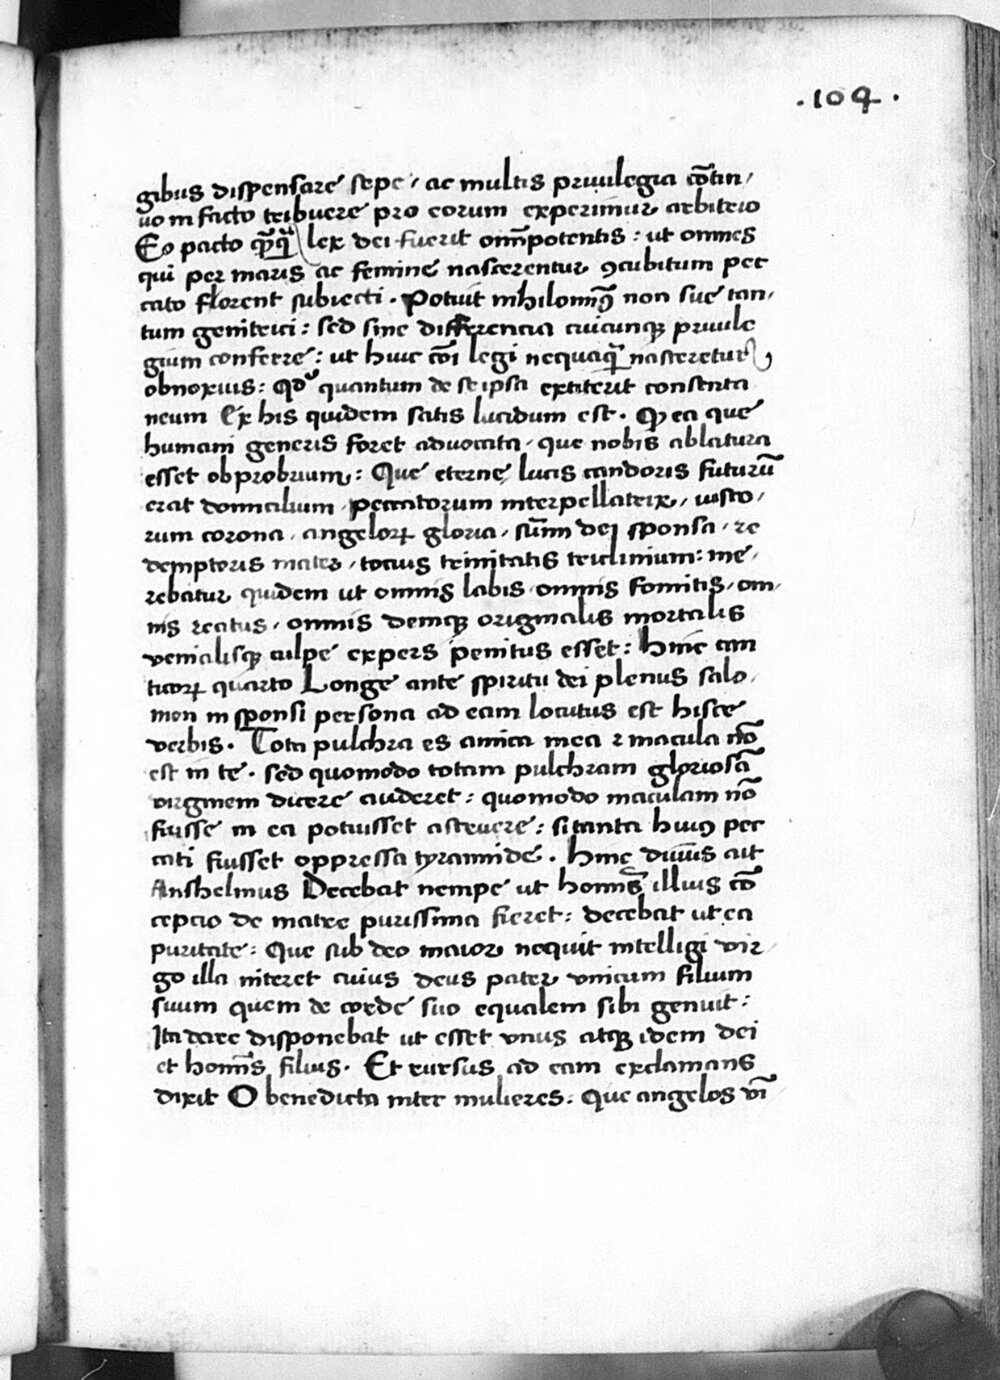 .104.
gibus dispensare sepe, ac multis priuilegia cōtin,
uo in facto tribuere pro eorum experimur arbitrio
Eo pacto qᷓqᷓ lex dei fuerit omīpotentis: ut omnes
qui per maris ac femine nascerentur ꝯcubitum pec
cato florent subiecti. Potuit nihilominꝰ non sue tan,
tum genitrici: sed sine differencia cuicunqꝫ priuile
gium conferre: ut huic cōi legi nequaqᷓ nasceretur
obnoxius: Qd̓ quantum de se ipsa extiterit consenta
neum Ex his quidem satis lucidum est. Ꝙ ea que
humani generis foret aduocata, que nobis ablatura
esset obprobrium: Que eterne lucis candoris futurū
erat domicilium, peccatorum interpellatrix, iusto,
rum corona, angeloꝝ gloria, sūmi dei sponsa, re
demptoris mater, tocius trinitatis triclinium: me,
rebatur quidem ut omnis labis, omnis fomitis, om,
nis reatus, omnis deniqꝫ originalis mortalis
uenialisqꝫ culpe expers penitus esset: Hinc can
ticoꝝ quarto Longe ante spiritu dei plenus salo,
mon in sponsi persona ad eam locutus est hisce
verbis. Tota pulchra es amica mea ⁊ macula nō
est in te. sed quomodo totam pulchram gloriosā
virginem dicere auderet: quomodo maculam nō
fuisse in ea potuisset astruere: si tanta huiꝰ pec
cati fuisset oppressa tyrannide. Hinc diuus ait
Anshelmus Decebat nempe ut homīs illius cō
cepcio de matre purissima fieret: decebat ut ea
puritate: Que sub deo maior nequit intelligi vir
go illa niteret cuius deus pater vnicum filium
suum quem de corde suo equalem sibi genuit:
Ita dare disponebat ut esset vnus atqꝫ idem dei
et homīs filius. Et rursus ad eam exclamans
dixit O benedicta inter mulieres: Que angelos vī